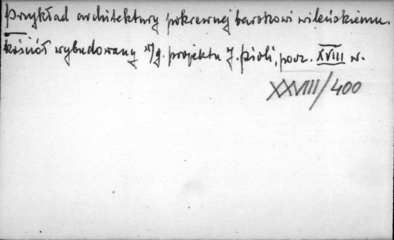 przykład architektury pokrewnej barokowi wileńskiemu.
kościół wybudowany w/g. projektu J. Pioli, pocz. XVIII w.
XXVIII/400